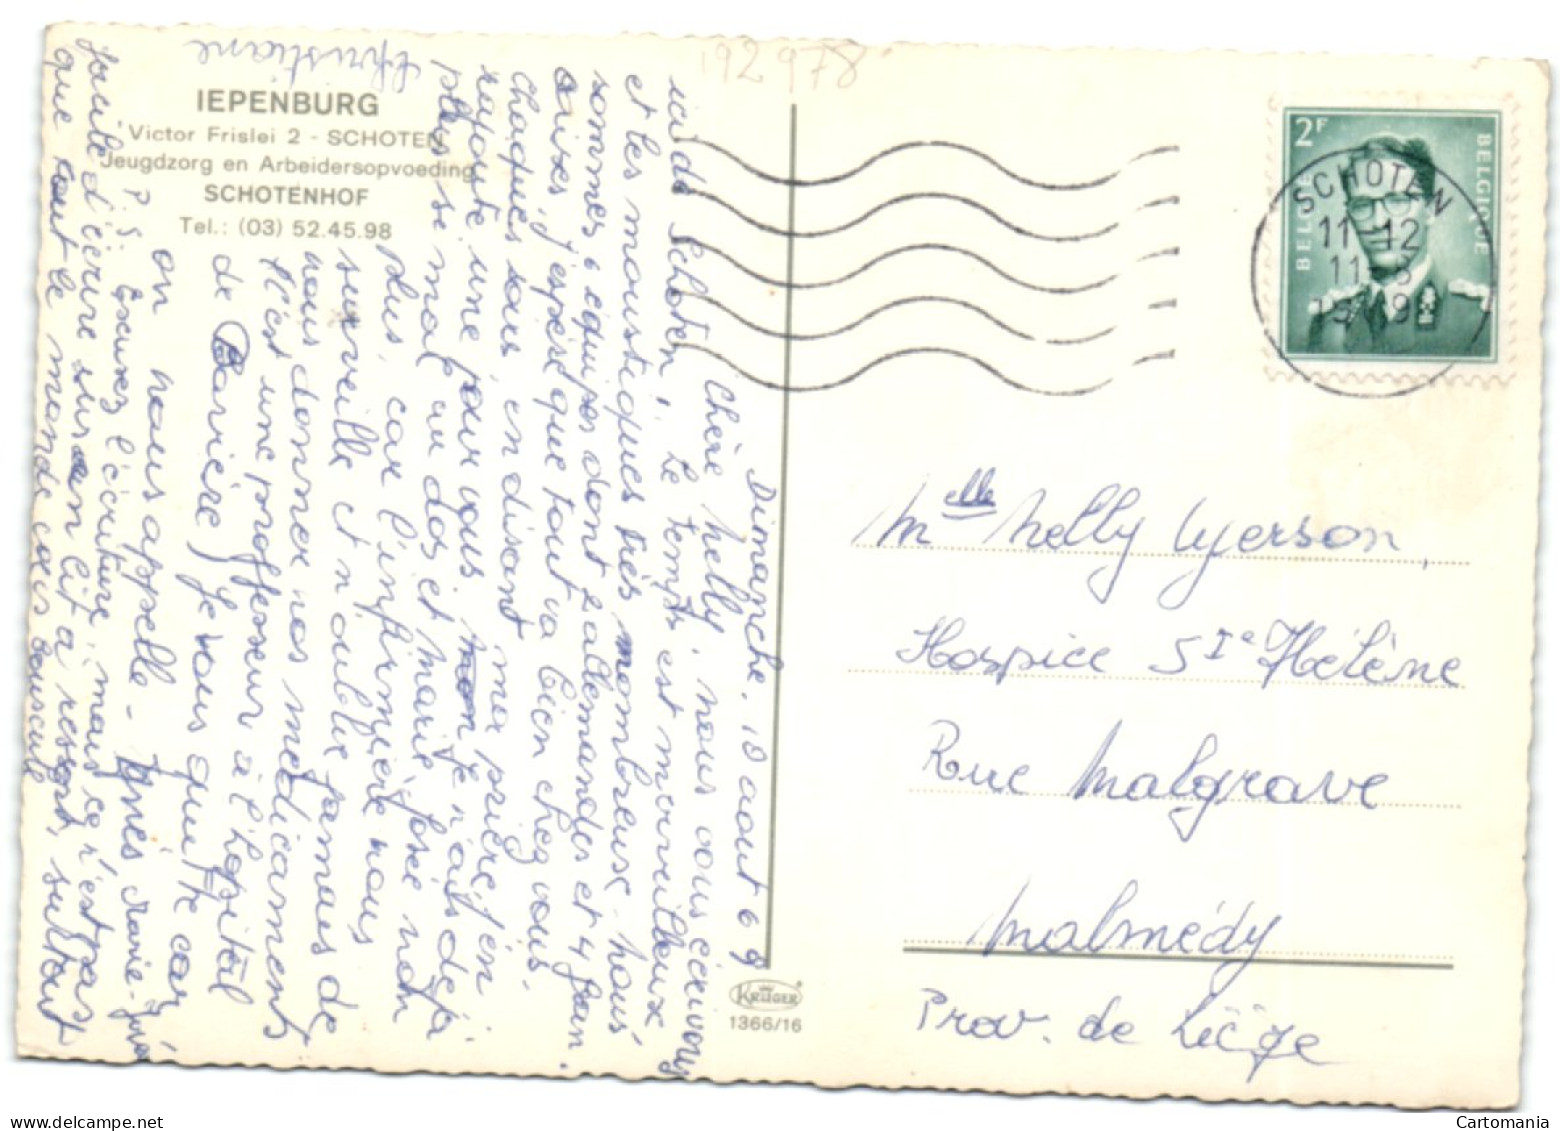 192978
IEPENBURG
Victor Frislei 2 - SCHOTEN
Jeugdzorg en Arbeidersopvoeding
SCHOTENHOF
Tel.: (03) 52.45.98
Dimanche. 10 aout 69
Chère Nelly. nous vous écrivons
ici de Schoten, Le temps est merveilleux
et les moustiques très nombreuse. nous
sommes 6 équipes dont 2 allemandes et 4 fran.
caises, j'espère que tout va bien chez vous.
Chaques sous en disant ma prière j'en
rajoute une pour vous, je n'ais déjà
plus se mal au dos et Marie-Josée non
plus, car l'infirmière nous
surveille et n'oublie jamais de
nous donner nos médicaments
C'est une proffesseur à l'hopital
de Bavière Je vous quitte car
on nous appelle - Agnès Marie-José
Christiane
P.S. Excusez l'écriture, mais ce n'est pas
facile d'écrire sur un lit à ressort, surtout
que tout le monde vous bouscule
KRÜGER
1366/16
2F
BELGIE
BELGIQUE
SCHOTEN
11-12
11-8
1969
Melle Nelly Lejerson,
Hospice Ste Hélène
Rue Malgrave
Malmédy
Prov. de Liège
Cartomania